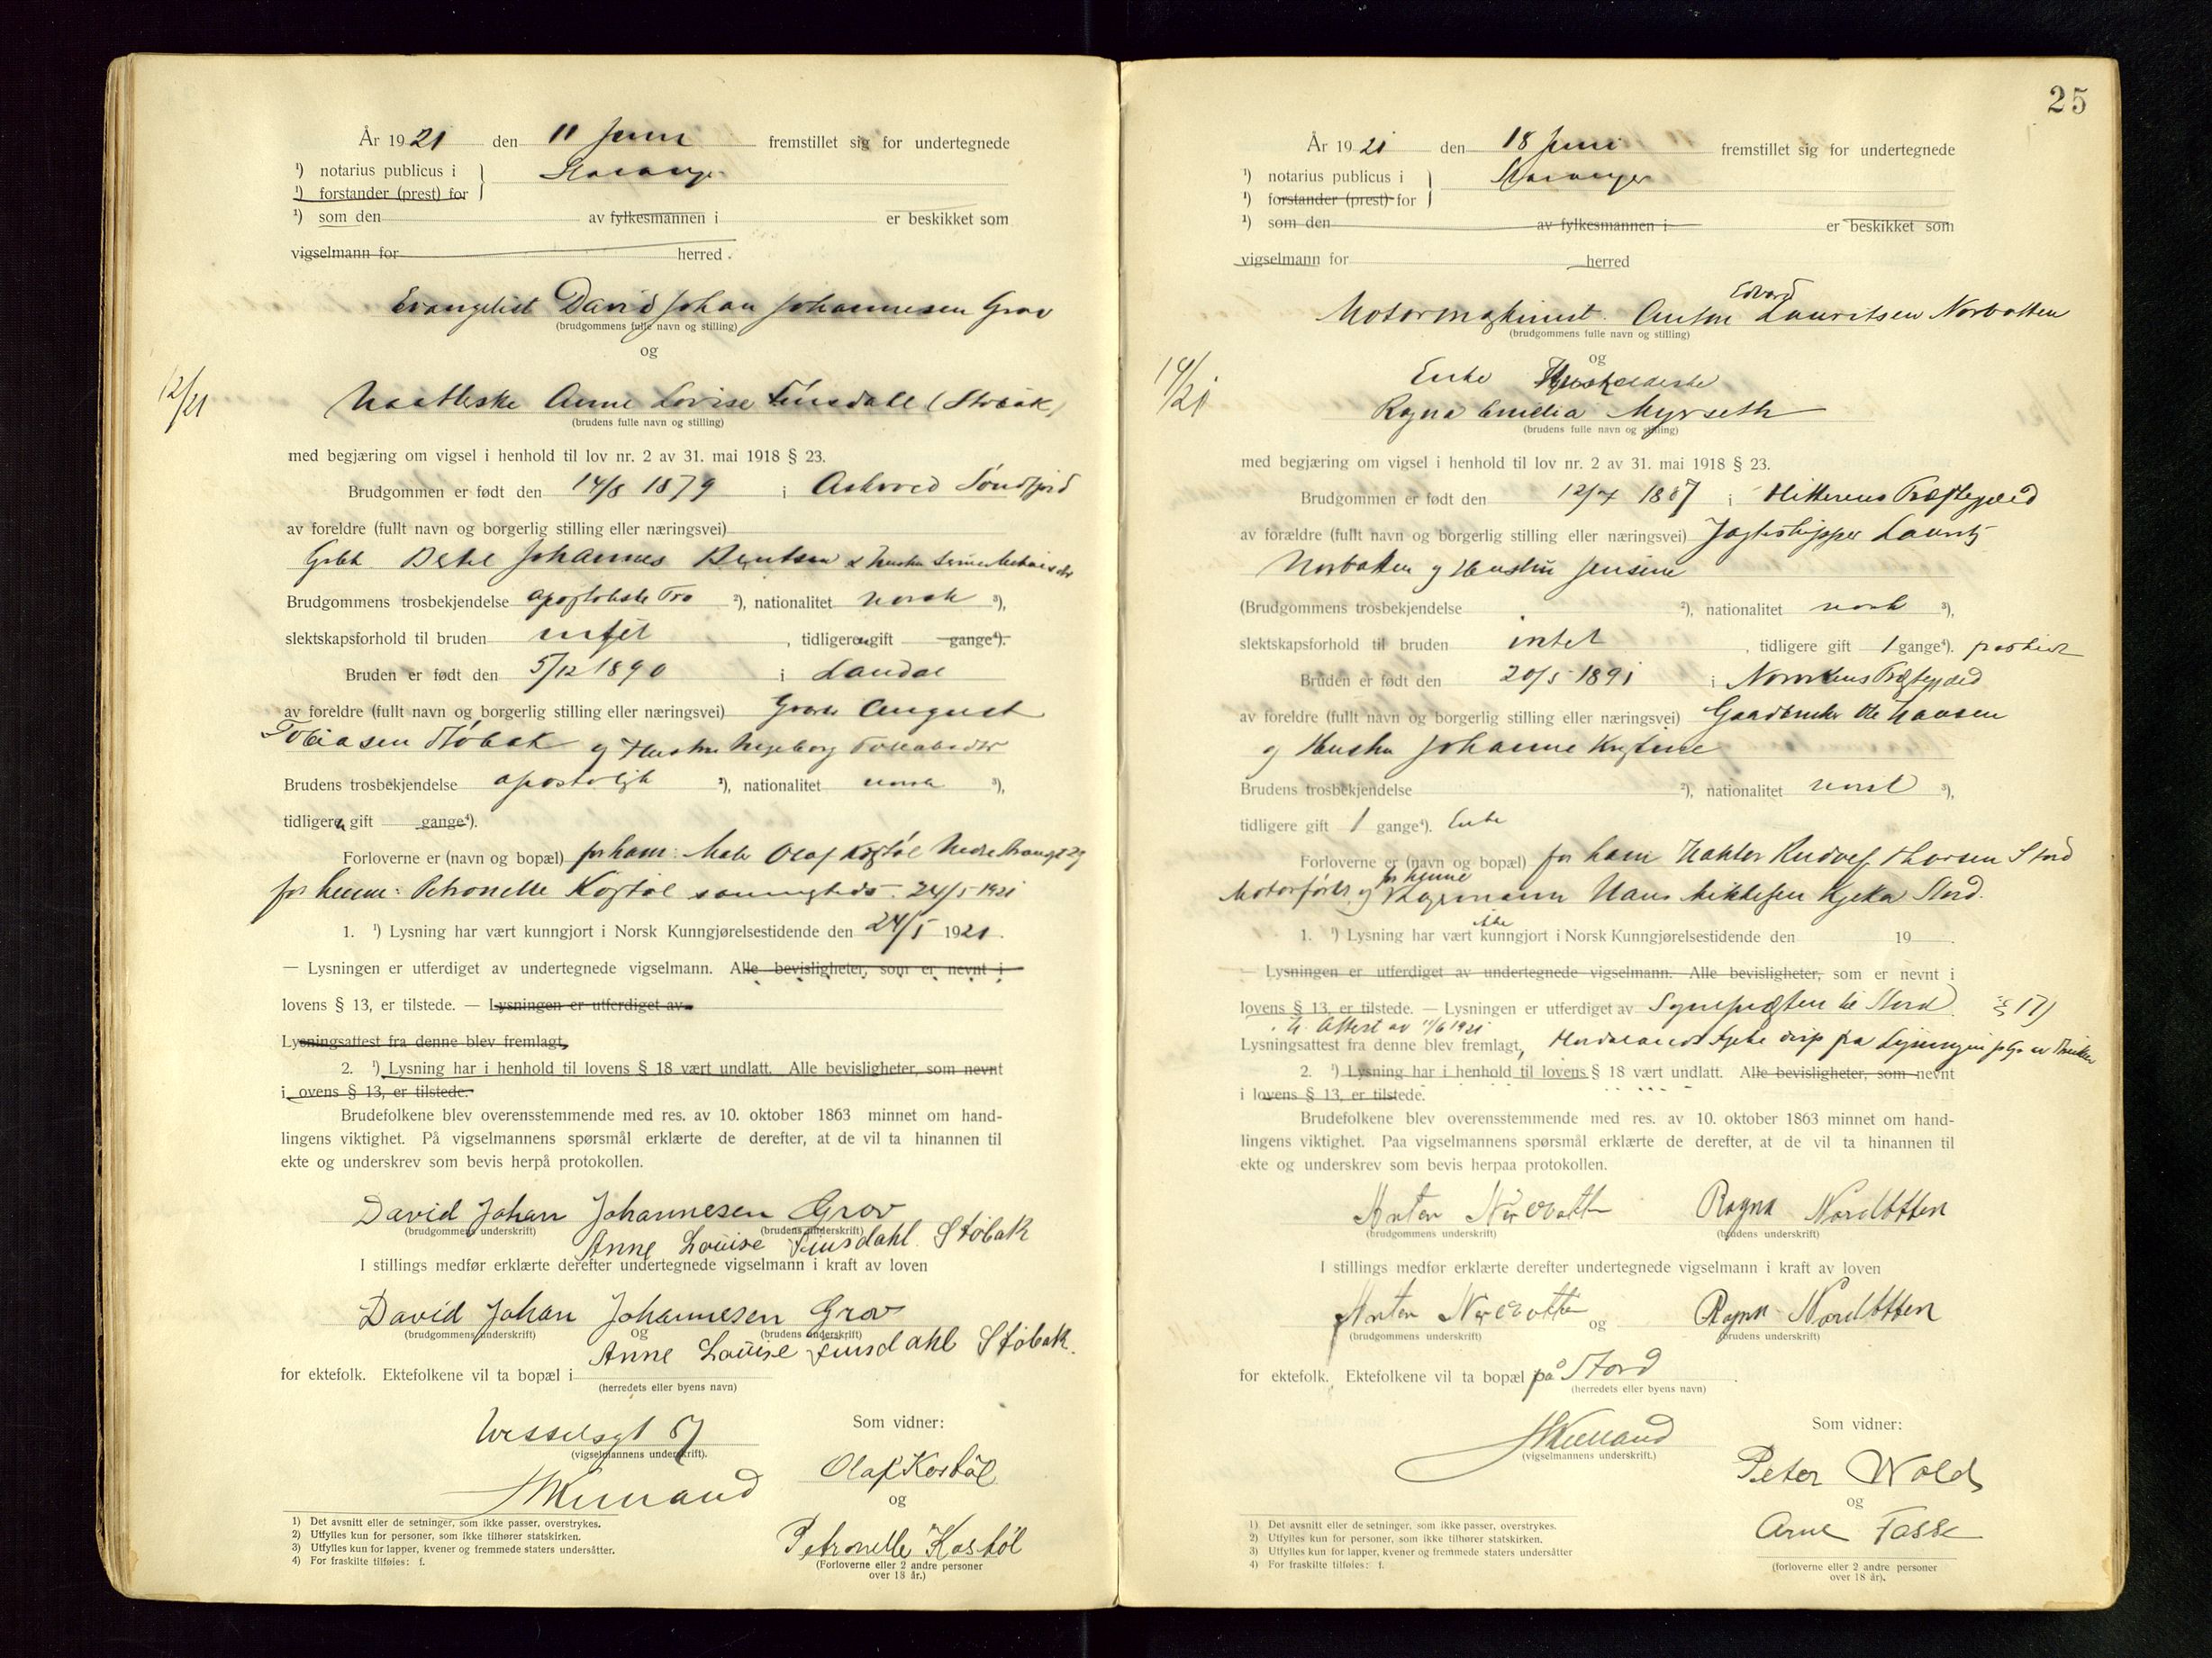 År 1921 den 11 Juni fremstillet sig for undertegnede
¹) notarius publicus i Stavanger
¹) forstander (prest) for
¹) som den av fylkesmannen i er beskikket som
vigselmann for herred
Evangelist David Johan Johannesen Grov
(brudgommens fulle navn og stilling)
og
12/21
Anne Lovise Finsdahl (Støbak)
(brudens fulle navn og stilling)
med begjæring om vigsel i henhold til lov nr. 2 av 31. mai 1918 § 23.
Brudgommen er født den 14/8 1879 i Askvold Søndfjord
av foreldre (fullt navn og borgerlig stilling eller næringsvei)
Johannes Berntsen & hustru
Brudgommens trosbekjendelse apostoliske Tro ²), nationalitet norsk ³),
slektskapsforhold til bruden intet , tidligere gift gange⁴).
Bruden er født den 5/12 1890 i Laudal
av foreldre (fullt navn og borgerlig stilling eller næringsvei) August
Tobiasen Støbak og Hustru Ingeborg
Brudens trosbekjendelse apostolisk ²), nationalitet norsk ³),
tidligere gift gange⁴).
Forloverne er (navn og bopæl) for ham: Maler Olaf Kostøl
for henne: Petronelle Kostøl sammesteds. 24/5 1921
1. ¹) Lysning har vært kunngjort i Norsk Kunngjørelsestidende den 24/5 1921.
— Lysningen er utferdiget av undertegnede vigselmann. Alle bevisligheter, som er nevnt i
lovens § 13, er tilstede. — Lysningen er utferdiget av
Lysningsattest fra denne blev fremlagt,
2. ¹) Lysning har i henhold til lovens § 18 vært undlatt. Alle bevisligheter, som nevnt
i lovens § 13, er tilstede.
Brudefolkene blev overensstemmende med res. av 10. oktober 1863 minnet om hand-
lingens viktighet. På vigselmannens spørsmål erklærte de derefter, at de vil ta hinannen til
ekte og underskrev som bevis herpå protokollen.
David Johan Johannesen Grov
(brudgommens underskrift) (brudens underskrift)
Anne Louise Finsdahl Støbak
I stillings medfør erklærte derefter undertegnede vigselmann i kraft av loven
David Johan Johannesen Grov
(brudgommens underskrift) og (brudens underskrift)
Anne Louise Finsdahl Støbak.
for ektefolk. Ektefolkene vil ta bopæl i
(herredets eller byens navn)
Wesselsgt 57
(vigselmannens underskrift).
Som vidner:
Olaf Kostøl
og
Petronelle Kostøl
(Forloverne eller 2 andre personer
over 18 år.)
1) Det avsnitt eller de setninger, som ikke passer, overstrykes.
2) Utfylles kun for personer, som ikke tilhører statskirken.
3) Utfylles kun for lapper, kvener og fremmede staters undersåtter.
4) For fraskilte tilføies: f.
25
År 1921 den 18 Juni fremstillet sig for undertegnede
¹) notarius publicus i Stavanger
¹) forstander (prest) for
¹) som den av fylkesmannen i er beskikket som
vigselmann for herred
Edvard
Motormaskinist. Anton Lauritsen Norbotten
(brudgommens fulle navn og stilling)
og
14/21
Enke
Ragna Emelia Myrseth
(brudens fulle navn og stilling)
med begjæring om vigsel i henhold til lov nr. 2 av 31. mai 1918 § 23.
Brudgommen er født den 12/4 1887 i Hitterens Præstegjeld
av forældre (fullt navn og borgerlig stilling eller næringsvei) Jagteskipper Laurits
Norbotten og Hustru Jensine
(Brudgommens trosbekjendelse ²), nationalitet norsk ³),
slektskapsforhold til bruden intet , tidligere gift 1 gange⁴).
Bruden er født den 20/5 1891 i Præstegjeld
av foreldre (fullt navn og borgerlig stilling eller næringsvei) Gaardbruker Ole Hansen
og Hustru Johanne Kristine
Brudens trosbekjendelse ²), nationalitet norsk ³),
tidligere gift 1 gange⁴). Enke
Forloverne er (navn og bopæl) for ham Stord
for henne
Motorfører og Hans Mikkelsen Stord.
ikke
1. ¹) Lysning har vært kunngjort i Norsk Kunngjørelsestidende den 19
— Lysningen er utferdiget av undertegnede vigselmann. Alle bevisligheter, som er nevnt i
lovens § 13, er tilstede. — Lysningen er utferdiget av Sognepræsten til Stord
Attest av 11/6 1921
Lysningsattest fra denne blev fremlagt,
2. ¹) Lysning har i henhold til lovens § 18 vært undlatt. Alle bevisligheter, som nevnt
i lovens § 13, er tilstede.
Brudefolkene blev overensstemmende med res. av 10. oktober 1863 minnet om hand-
lingens viktighet. Paa vigselmannens spørsmål erklærte de derefter, at de vil ta hinannen til
ekte og underskrev som bevis herpaa protokollen.
Anton Ragna Nordbotten
(brudgommens underskrift) (brudens underskrift)
I stillings medfør erklærte derefter undertegnede vigselmann i kraft av loven
Anton og Ragna Nordbotten
(brudgommens underskrift) (brudens underskrift)
for ektefolk. Ektefolkene vil ta bopæl på Stord
(herredets eller byens navn)
(vigselmannens underskrift.)
Som vidner:
Peter Wold
og
Arne Fosse
(forloverne eller 2 andre personer
over 18 år).
1) Det avsnitt eller de setninger, som ikke passer, overstrykes.
2) Utfylles kun for personer, som ikke tilhører statskirken.
3) Utfylles kun for lapper, kvener og fremmede staters undersåtter
4) For fraskilte tilføies: f.